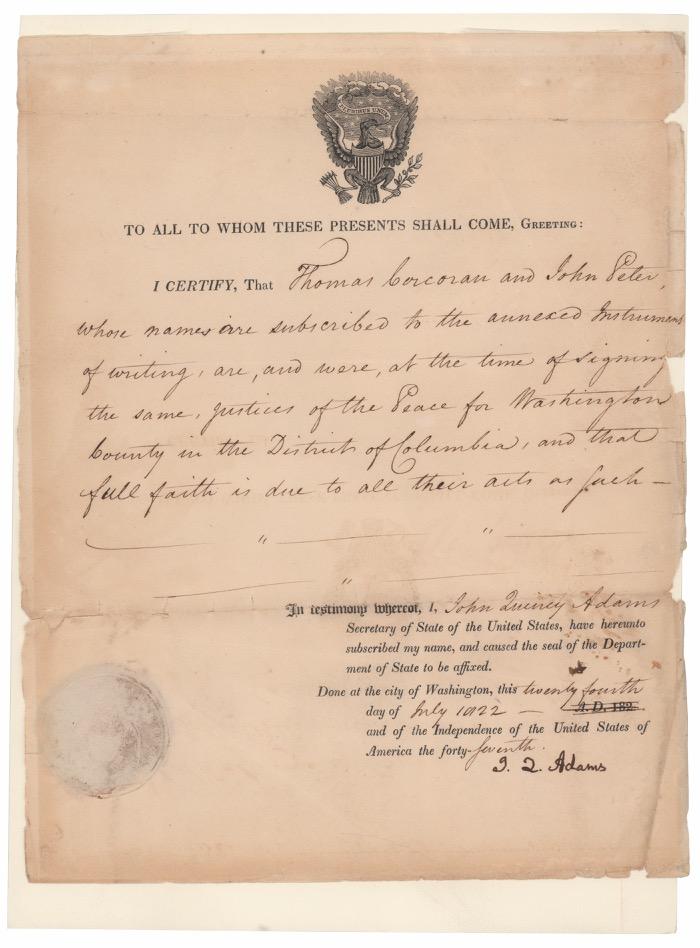 E PLURIBUS UNUM
TO ALL TO WHOM THESE PRESENTS SHALL COME, GREETING:
I CERTIFY, That Thomas Corcoran and John Peter,
whose names are subscribed to the annexed Instrument
of writing, are, and were, at the time of signing
the same, Justices of the Peace for Washington
County in the District of Columbia, and that
full faith is due to all their acts as such —
In testimony whereof, I, John Quincy Adams
Secretary of State of the United States, have hereunto
subscribed my name, and caused the seal of the Depart-
ment of State to be affixed.
Done at the city of Washington, this twenty fourth
day of July 1822 — A.D. 182
and of the Independence of the United States of
America the forty-seventh.
J. Q. Adams